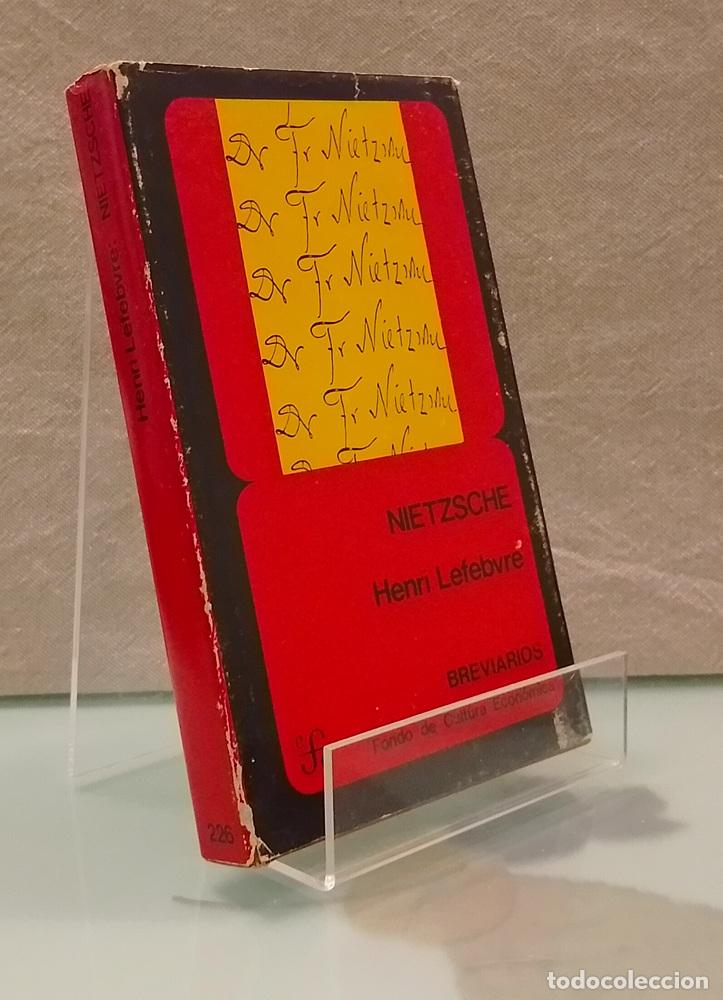 Henri Lefebvre: NIETZSCHE
226
Dr Fr Nietzsche
Dr Fr Nietzsche
Dr Fr Nietzsche
Dr Fr Nietzsche
Dr Fr Nietzsche
Dr Fr Nietzsche
NIETZSCHE
Henri Lefebvre
BREVIARIOS
Fondo de Cultura Económica
todocoleccion